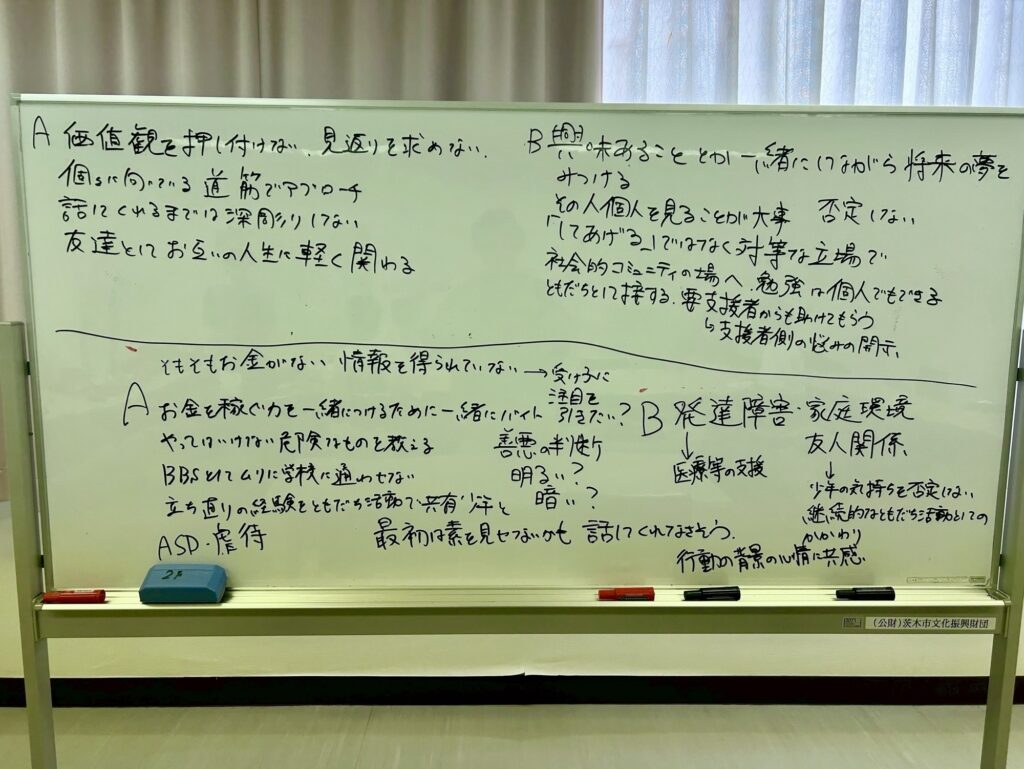 A 価値観を押し付けない、見返りを求めない。
個々に向いている道筋でアプローチ
話してくれるまでは深彫りしない
友達としてお互いの人生に軽く関わる
B 興味あることとか一緒にしながら将来の夢を
みつける
その人個人を見ることが大事 否定しない
「してあげる」ではなく対等な立場で
社会的コミュニティの場へ、勉強は個人でもできる
ともだちとして接する、要支援者からも助けてもらう
↳支援者側の悩みの開示、
そもそもお金がない 情報を得られていない→受け子に
注目を
引きたい?
A お金を稼ぐ力を一緒につけるために一緒にバイト
やってはいけない危険なものを教える
BBSとしてムリに学校に通わせない
立ち直りの経験をともだち活動で共有 少年と
ASD・虐待
善悪の判断
明るい?
暗い?
最初は素を見せないかも 話してくれなさそう。
B 発達障害・家庭環境
友人関係
↓
医療等の支援
↓
少年の気持ちを否定しない
継続的なともだち活動としての
かかわり
行動の背景の心情に共感
2F
(公財)茨木市文化振興財団